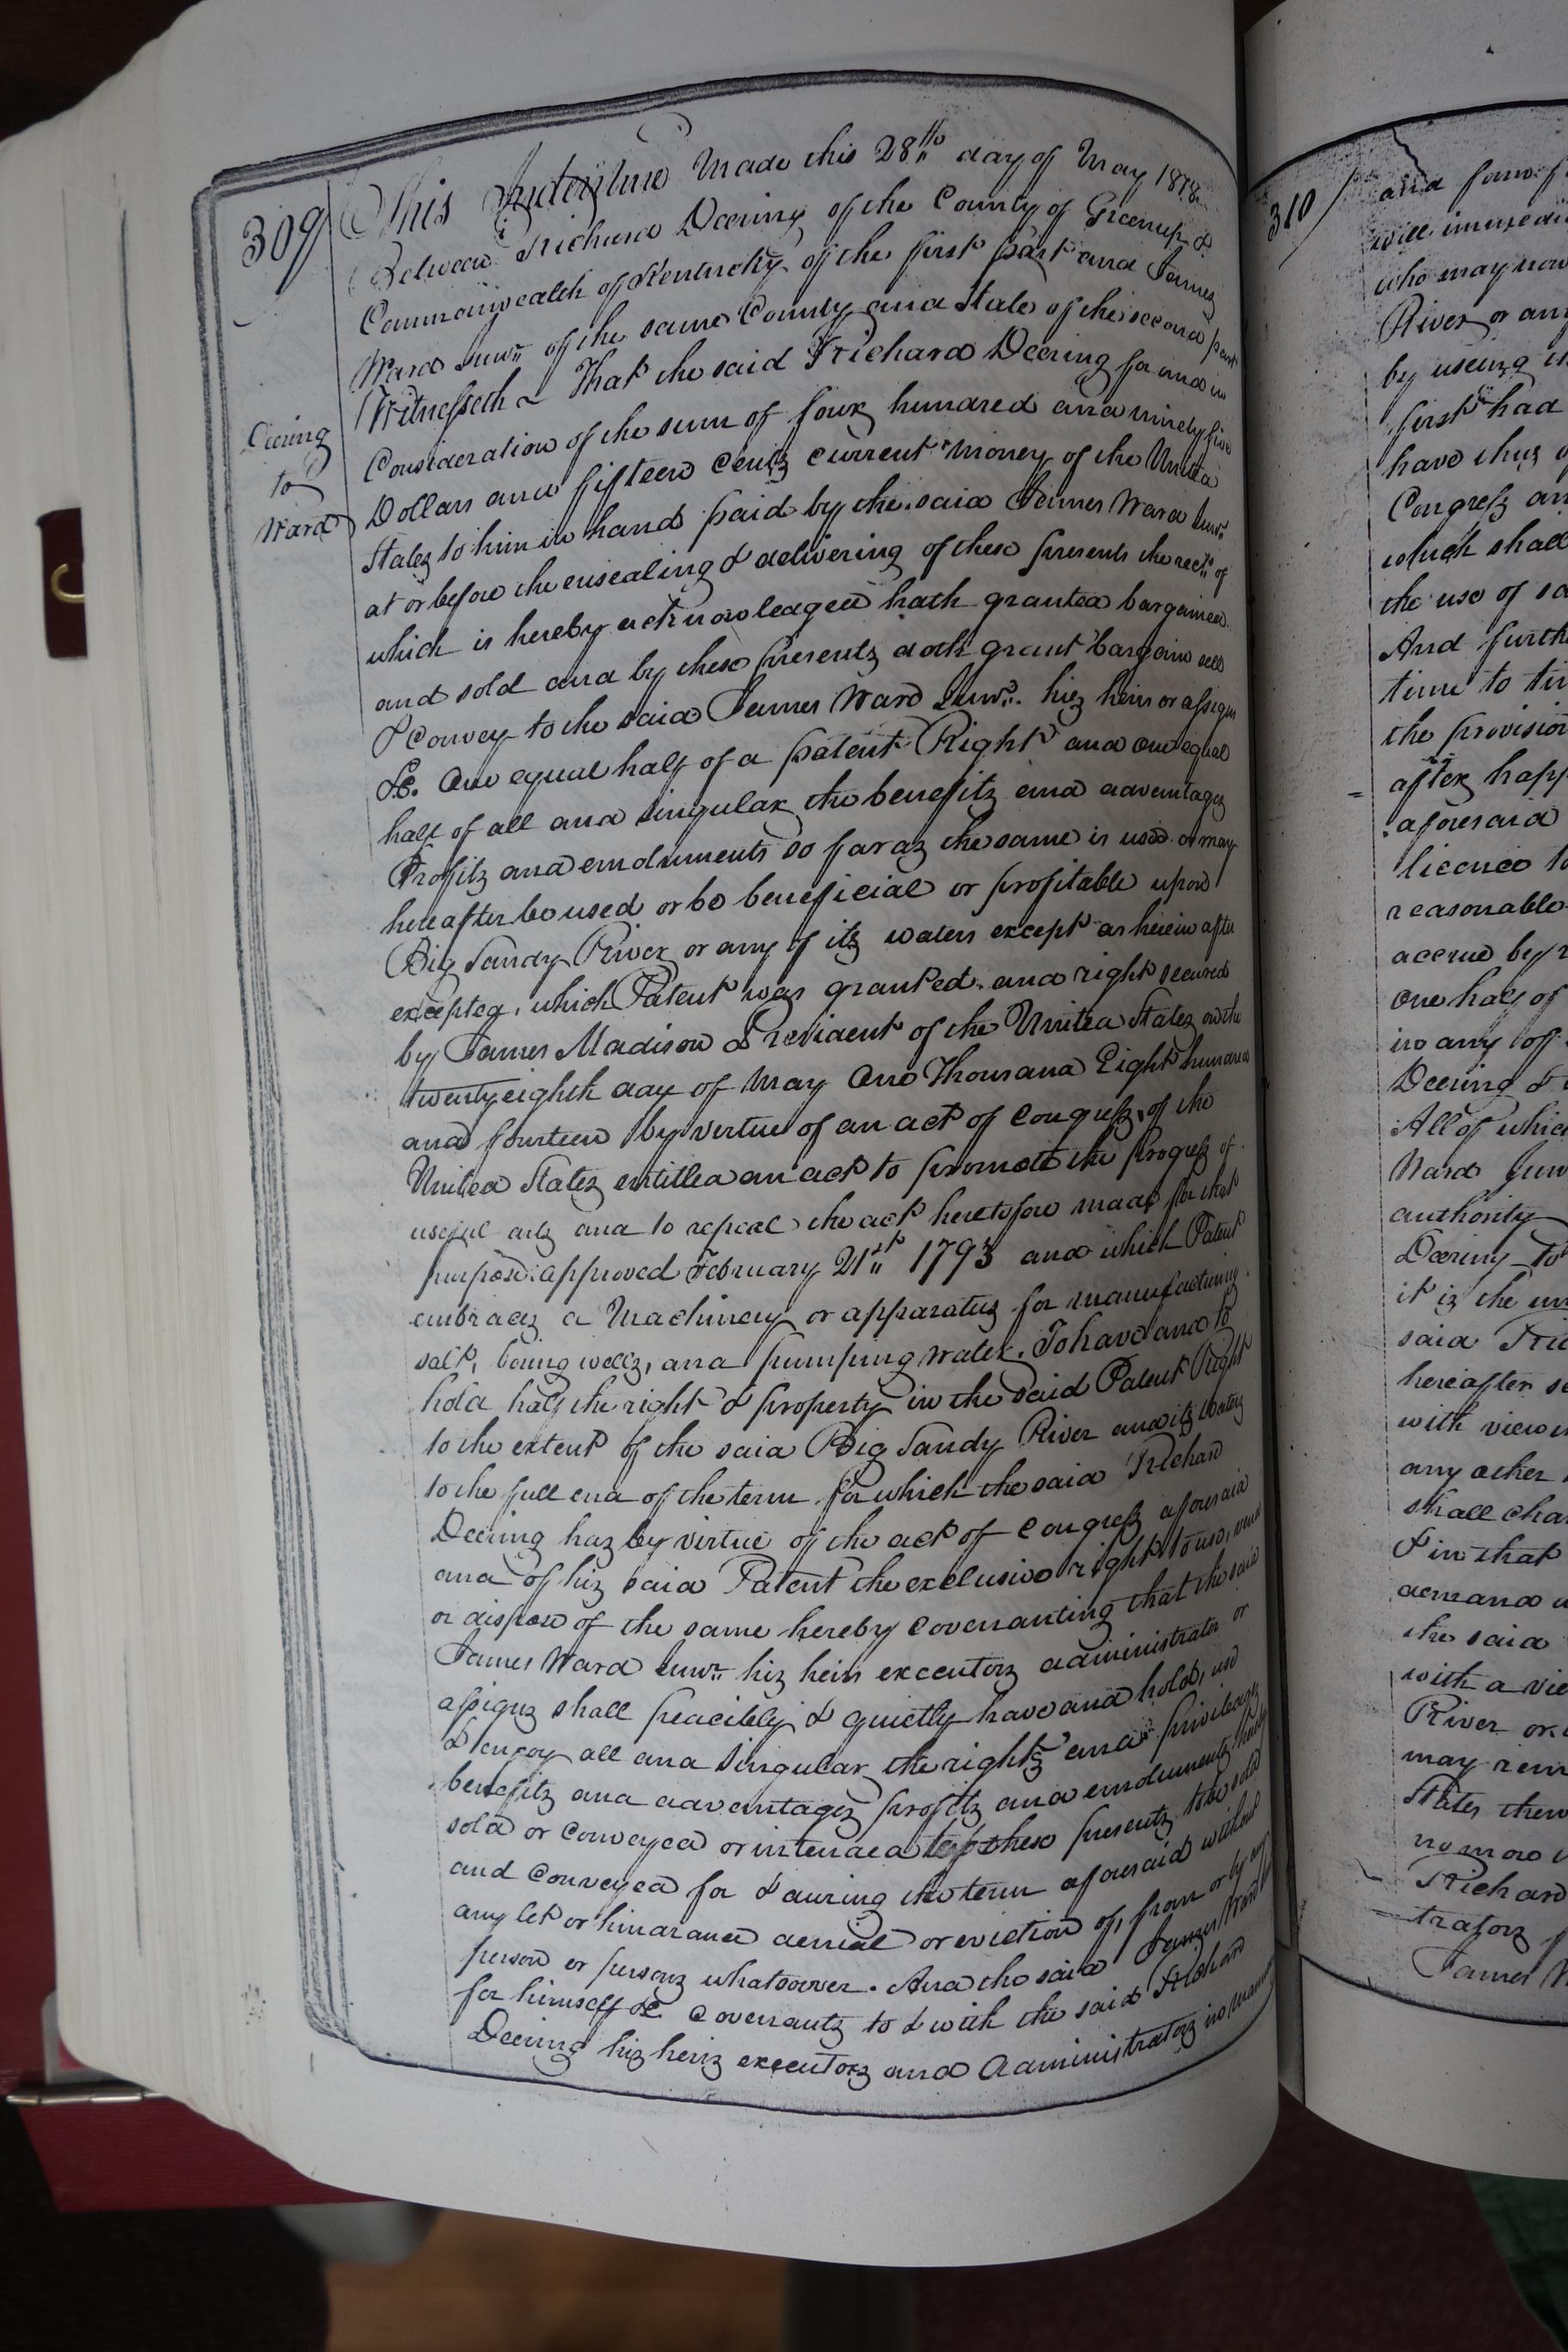 309
This Indenture Made this 28th day of May 1818
Between Richard Deering of the County of Greenup &
Commonwealth of Kentucky of the first part and James
Ward Junr. of the same County and State of the second part
Witnesseth ~ That the said Richard Deering for and in
Consideration of the sum of four hundred and ninety five
Dollars and fifteen Cents current money of the United
States to him in hand paid by the said James Ward Junr.
at or before the ensealing & delivering of these presents the rect. of
which is hereby acknowledged hath granted bargained
and sold and by these presents doth grant bargain sell
& Convey to the said James Ward Junr. his heirs or assigns
&c. One equal half of a patent Right and one equal
half of all and singular the benefits and advantages
Profits and emoluments so far as the same is used or may
hereafter be used or be beneficial or profitable upon
Big Sandy River or any of its waters except as herein after
excepted, which Patent was granted and right secured
by James Madison President of the United States on the
twenty eighth day of May One Thousand Eight hundred
and fourteen by virtue of an act of Congress of the
United States entitled an act to promote the progress of
useful arts and to repeal the act heretofore made for that
purpose approved February 21st 1793 and which Patent
embraces a Machinery or apparatus for manufacturing
salt, boring wells, and pumping water. To have and to
hold half the right & property in the said Patent Right
to the extent of the said Big Sandy River and its Waters
to the full end of the term for which the said Richard
Deering has by virtue of the act of Congress aforesaid
and of his said Patent the exclusive right to use, vend
or dispose of the same hereby covenanting that the said
James Ward Junr. his heirs executors administrator or
assigns shall peacibly & quietly have and hold, use
& enjoy all and singular the rights and priviledges
benefits and advantages profits and emoluments hereby
sold or conveyed or intended by these presents to be sold
and conveyed for & during the term aforesaid without
any let or hindrance denial or eviction of, from or by any
person or persons whatsoever. And the said James Ward
for himself &c Covenants to & with the said Richard
Deering his heirs executors and Administrators in manner
Deering
to
Ward
310
and
will immedia
who may now
River or any
by useing
first had
have thus
Congress an
which shall
the use of sa
And furth
time to ti
the provision
after happ
aforesaid
licence to
reasonable
accrue by
One half of
in any of
Deering &
All of which
Ward Jun
authority
Deering to
it is the un
said Ric
hereafter
with view
any other
shall cha
& in that
demand
the said
with a vie
River or
may rem
States then
no more
Richard
trators
James W